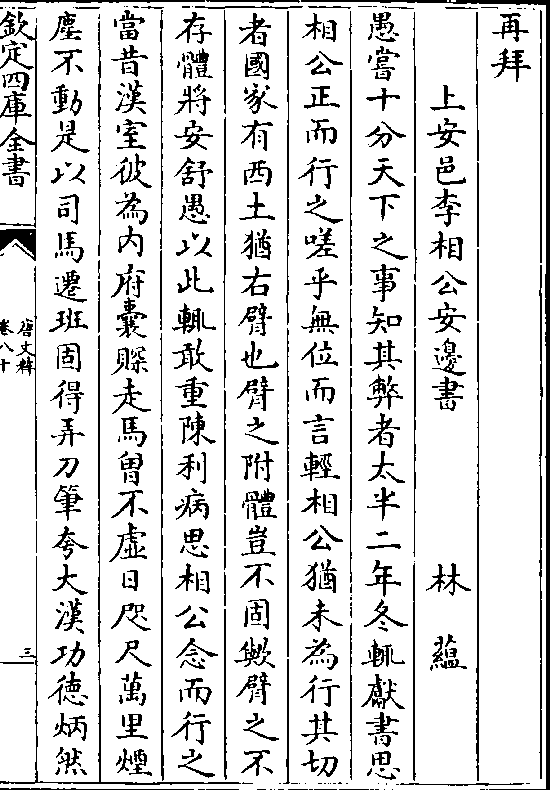 再拜
上安邑李相公安邊書 林蘊
愚嘗十分天下之事知其弊者太半二年冬輒獻書思
相公正而行之嗟乎無位而言輕相公猶未為行其切
者國家有西土猶右臂也臂之附體豈不固歟臂之不
存體將安舒愚以此輒敢重陳利病思相公念而行之
當昔漢室彼為内府囊賝走馬曾不虛日咫尺萬里煙
塵不動是以司馬遷班固得弄刀筆夸大漢功德炳然
欽定四庫全書
唐文粹
卷八十
三